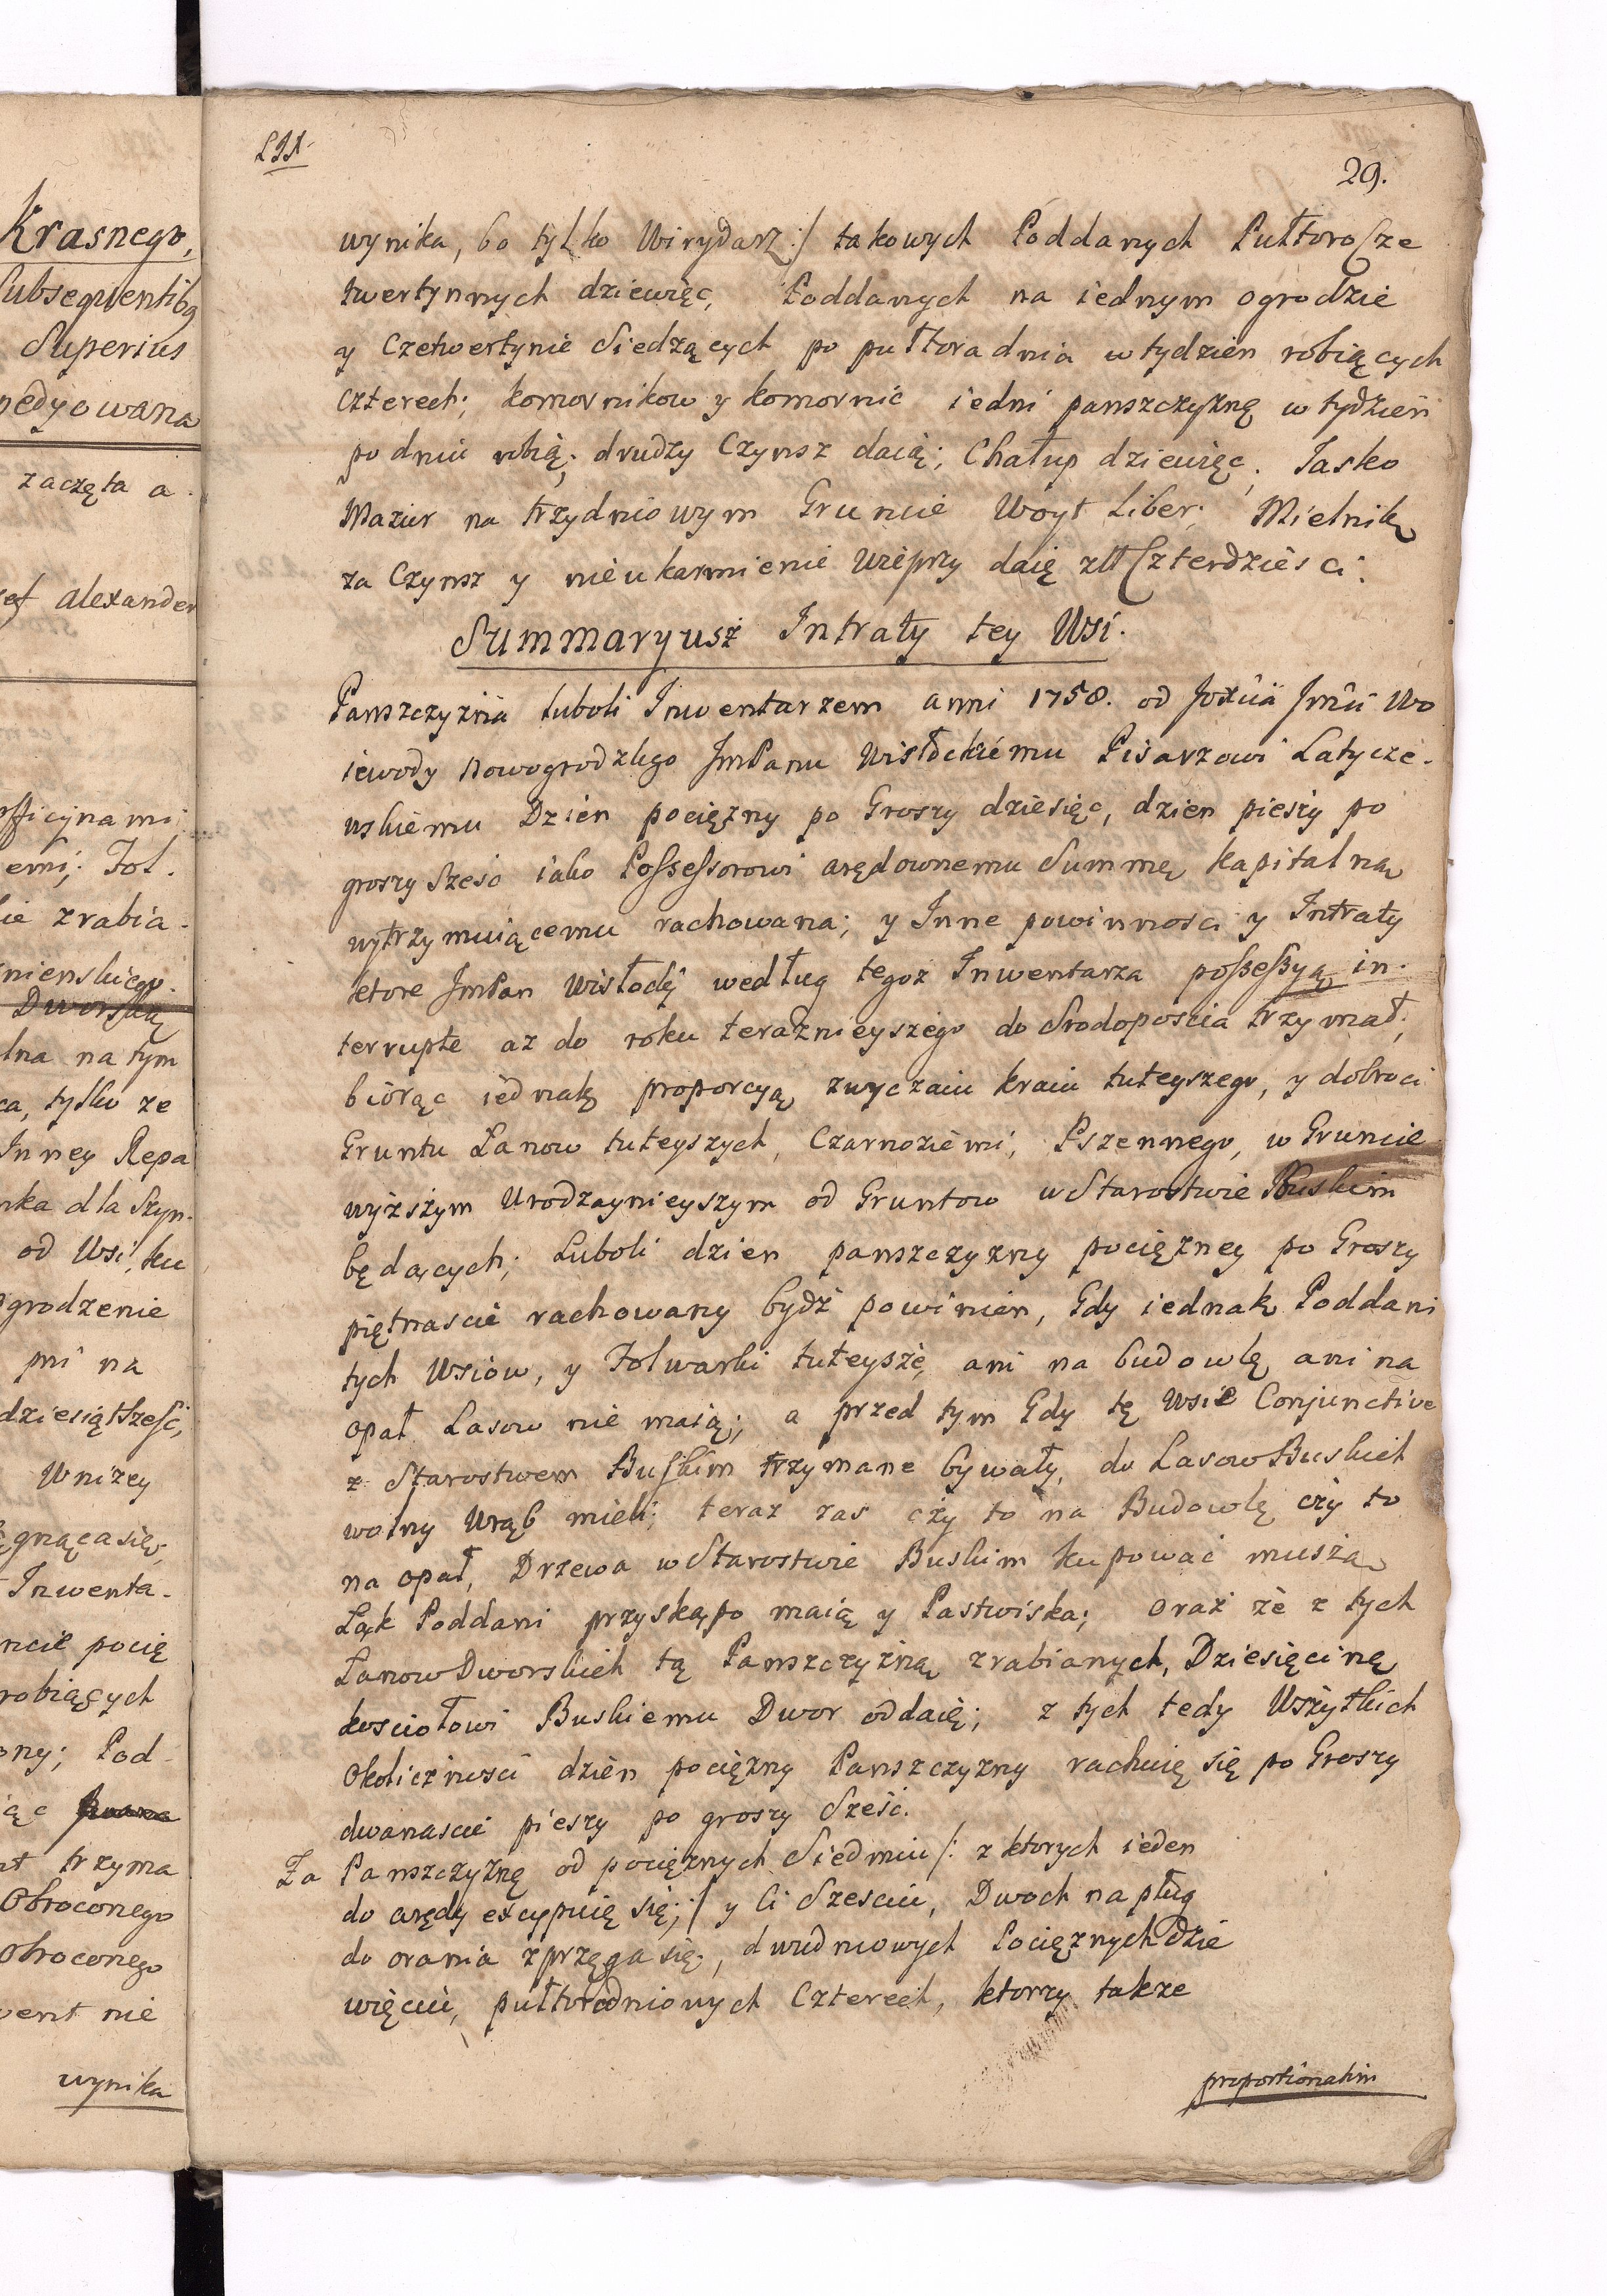 Krasnego,
Subsequentibq
Superius
nedyowana
zaczęta a
sef Alexander
officynami
emi; Fol.
ie zrabia-
nienskiego.
Dworską
lna na tym
ca, tylko ze
Inney Repa
nka dla Szyn-
od Wsi, ku
ogrodzenie
pni na
dziesiąt Sześć,
Wnizey
ągnącasię,
Inwenta-
ncie pocię
robiących
ony; Pod-
iąc
nt trzyma
Obroconego
Obroconego
went nie
wynika
29.
wynika, bo tylko Wirydarz :/ takowych Poddanych Pułtoro Cze
twertynnych dziewięc, Poddanych na iednym ogrodzie
y Czetwertynie Siedzących po pułtora dnia w tydzien robiących
czterech; komornikow y komornic iedni panszczyznę w tydzien
po dniu robią; drudzy Czynsz daią; Chałup dziewięc; Jasko
Mazur na trzydniowym Gruncie Woyt Liber; Mielnik
za Czynsz y nieukarmienie Wieprzy daię złł Czterdziesci.
Summaryusz Intraty tey Wsi.
Panszczyzna luboli Inwentarzem anni 1758. od Wo
iewody Nowogrodzkego JmPanu Wisłockiemu Pisarzowi Latycze-
wskiemu Dzien pociężny po Groszy dziesięc, dzien pieszy po
groszy Szesc iako Possessorowi arędownemu Summę kapitalną
wytrzymuiącemu rachowana; y Inne powinnosci y Intraty
ktore JmPan Wisłocki według tegoz Inwentarza possessyą in-
terrupte az do roku teraznieyszego do Srodoposcia trzymał;
biorąc iednak proporcyą zwyczaiu kraiu tuteyszego, y dobroci
Gruntu Łanow tuteyszych, Czarnoziemi, Pszennego, w Gruncie
wyższym Urodzaynieyszym od Gruntow w Starostwie Buskim
będących; Luboli dzien panszczyzny pociężney po Groszy
piętnascie rachowany bydź powinien, Gdy iednak Poddani
tych Wsiow, y Folwarki tuteysze, ani na budowlę ani na
opał Lasow nie maią; a przed tym Gdy tę Wsie Conjunctive
z Starostwem Buskim trzymane bywały, do Lasow Buskich
wolny Wrąb mieli; teraz zas czy to na Budowlę czy to
na opał, Drzewa w Starostwie Buskim kupować muszą
Łąk Poddani przyskąpo maią y Pastwiska; oraz że z tych
Łanow Dworskich tą Panszczyzną zrabianych, Dziesięcinę
kosciołowi Buskiemu Dwor oddaię; z tych tedy Wszytkich
Okolicznosci dzien pociężny Panszczyzny rachuię się po Groszy
dwanascie pieszy po groszy Sześć.
Za Panszczyznę od pociężnych Siedmiu /: z ktorych ieden
do arędy excypuię się; :/ y Ci Szesciu, Dwoch na pług
do orania zprzęga się, dwudniowych Pociężnych Dzie
więciu, pułtoradniowych Czterech, ktorzy takze
proportionatim